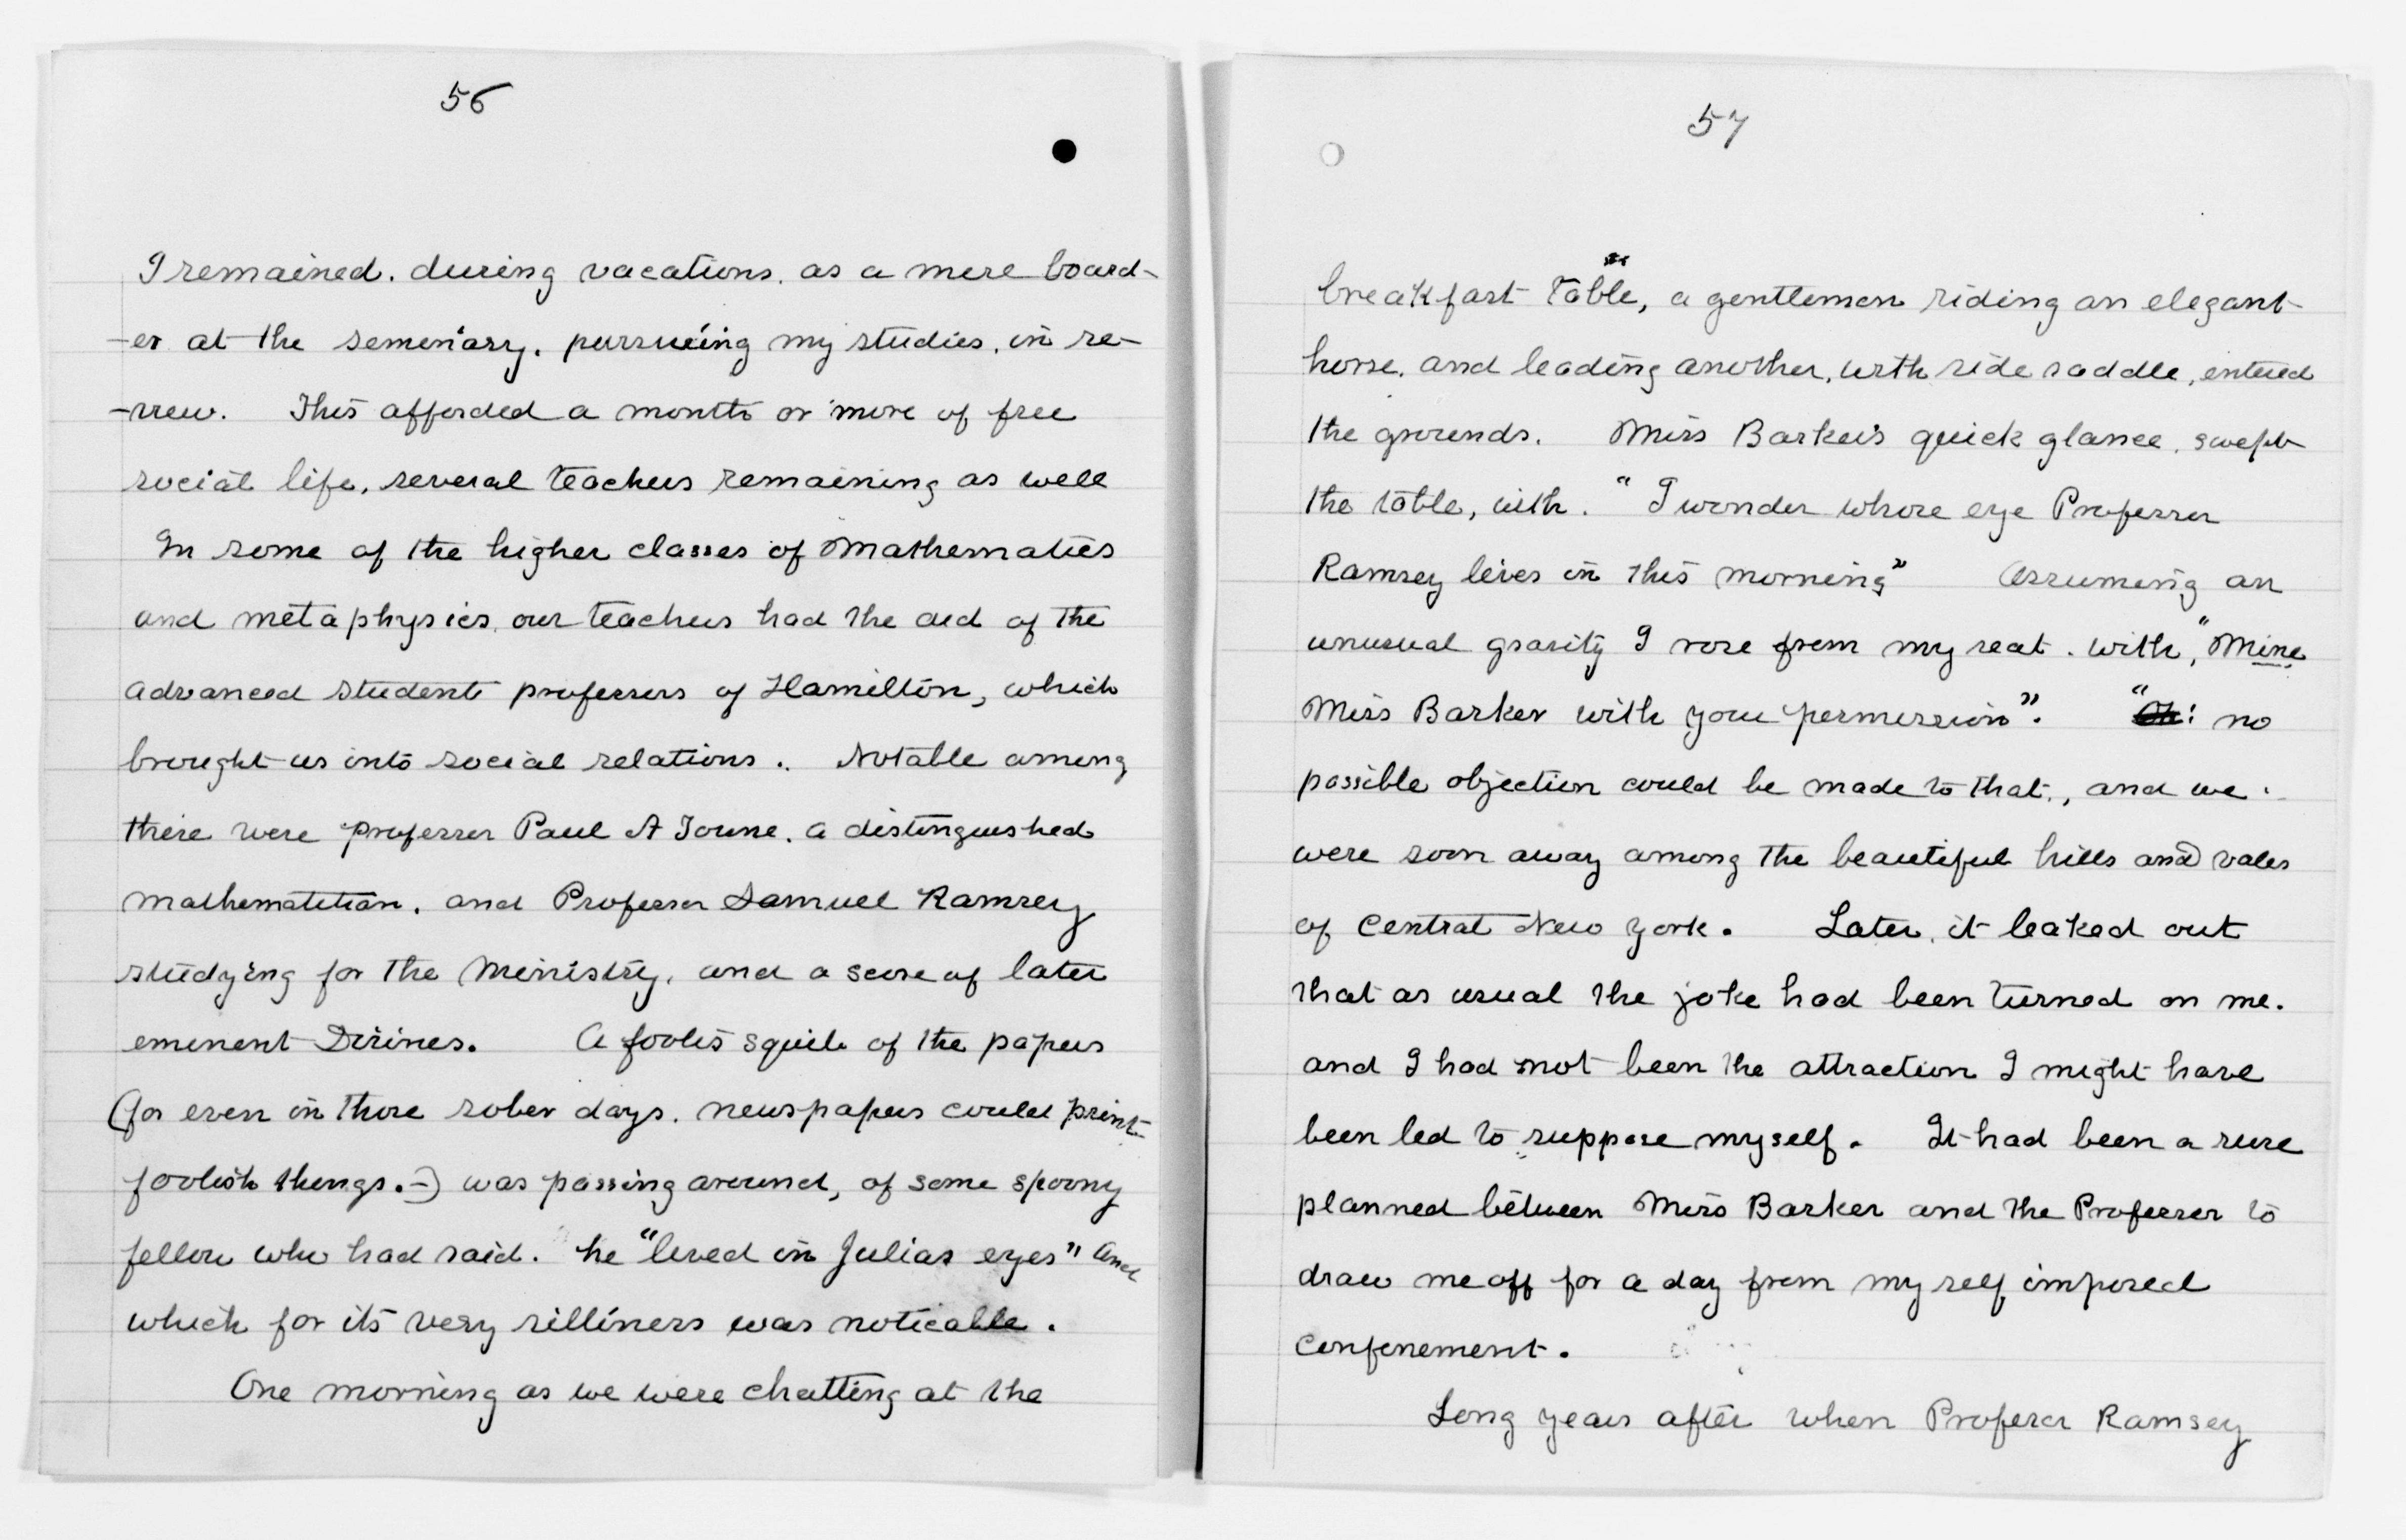 56
I remained. during vacations. as a mere board-
-er at the semenary. pursueing my studies. in re-
-view. This afforded a month or more of free
social life, several teachers remaining as well
In some of the higher classes of Mathematics
and metaphysics. our teachers had the aid of the
advanced student professors of Hamilton, which
brought us into social relations. Notable among
these were professor Paul A Toune. a distinguished
mathematitian. and Professor Samuel Ramsey
studying for the Ministry. and a score of later
eminent Divines. A foolis squib of the papers
(for even in those sober days. newspapers could print
foolish things.-) was passing around, of some spoony
fellow who had said. he "lived in Julias eyes" and
which for its very silliness was noticable.
One morning as we were chatting at the
57
breakfast table, a gentleman riding an elegant
horse. and leading another, with side saddle, entered
the grounds. Miss Barker's quick glance. swept
the table, with. "I wonder whose eye Professor
Ramsey lives in this morning" Assuming an
unusual gravity I rose from my seat. with, "Mine
Miss Barker with your permission". " no
possible objection could be made to that., and we
were soon away among the beautiful hills and vales
of Central New York. Later. it leaked out
that as usual the joke had been turned on me.
and I had not been the attraction I might have
been led to suppose myself. It had been a ruse
planned between Miss Barker and the Professor to
draw me off for a day from my self imposed
confinement.
Long years after when Professor Ramsey